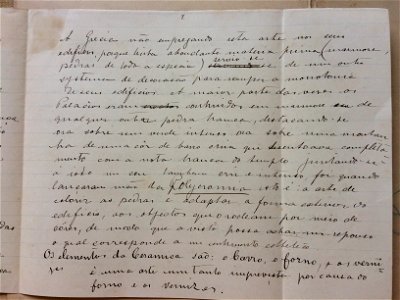 2
A Grecia não empregando esta arte nos seus
edificios, porque tinha abundante materia prima (marmore,
pedras de toda a especie) serviu-se de um outro
systema de decoração para romper a monotonia
de seus edificios. A maior parte das vezes os
Palacios eram construidos em marmore ou de
qualquer outra pedra branca, destacando-se
ora sobre um verde intenso ora sobre uma montan
ha de uma côr de barro crua que
com a nota branca do templo juntando-se
a isto um ceu tambem intenso foi quando
lançaram mão da Polycromia isto é a arte de
colorir as pedras e adaptar a forma do
edificio, aos objectos que o rodeiam por meio de
cores, de modo que a vista possa achar um repouso
o qual corresponde a um
Os elementos da Ceramica são: o barro, o forno, e os verni-
zes
é uma arte um tanto imprevista por causa do
forno e os vernizes.